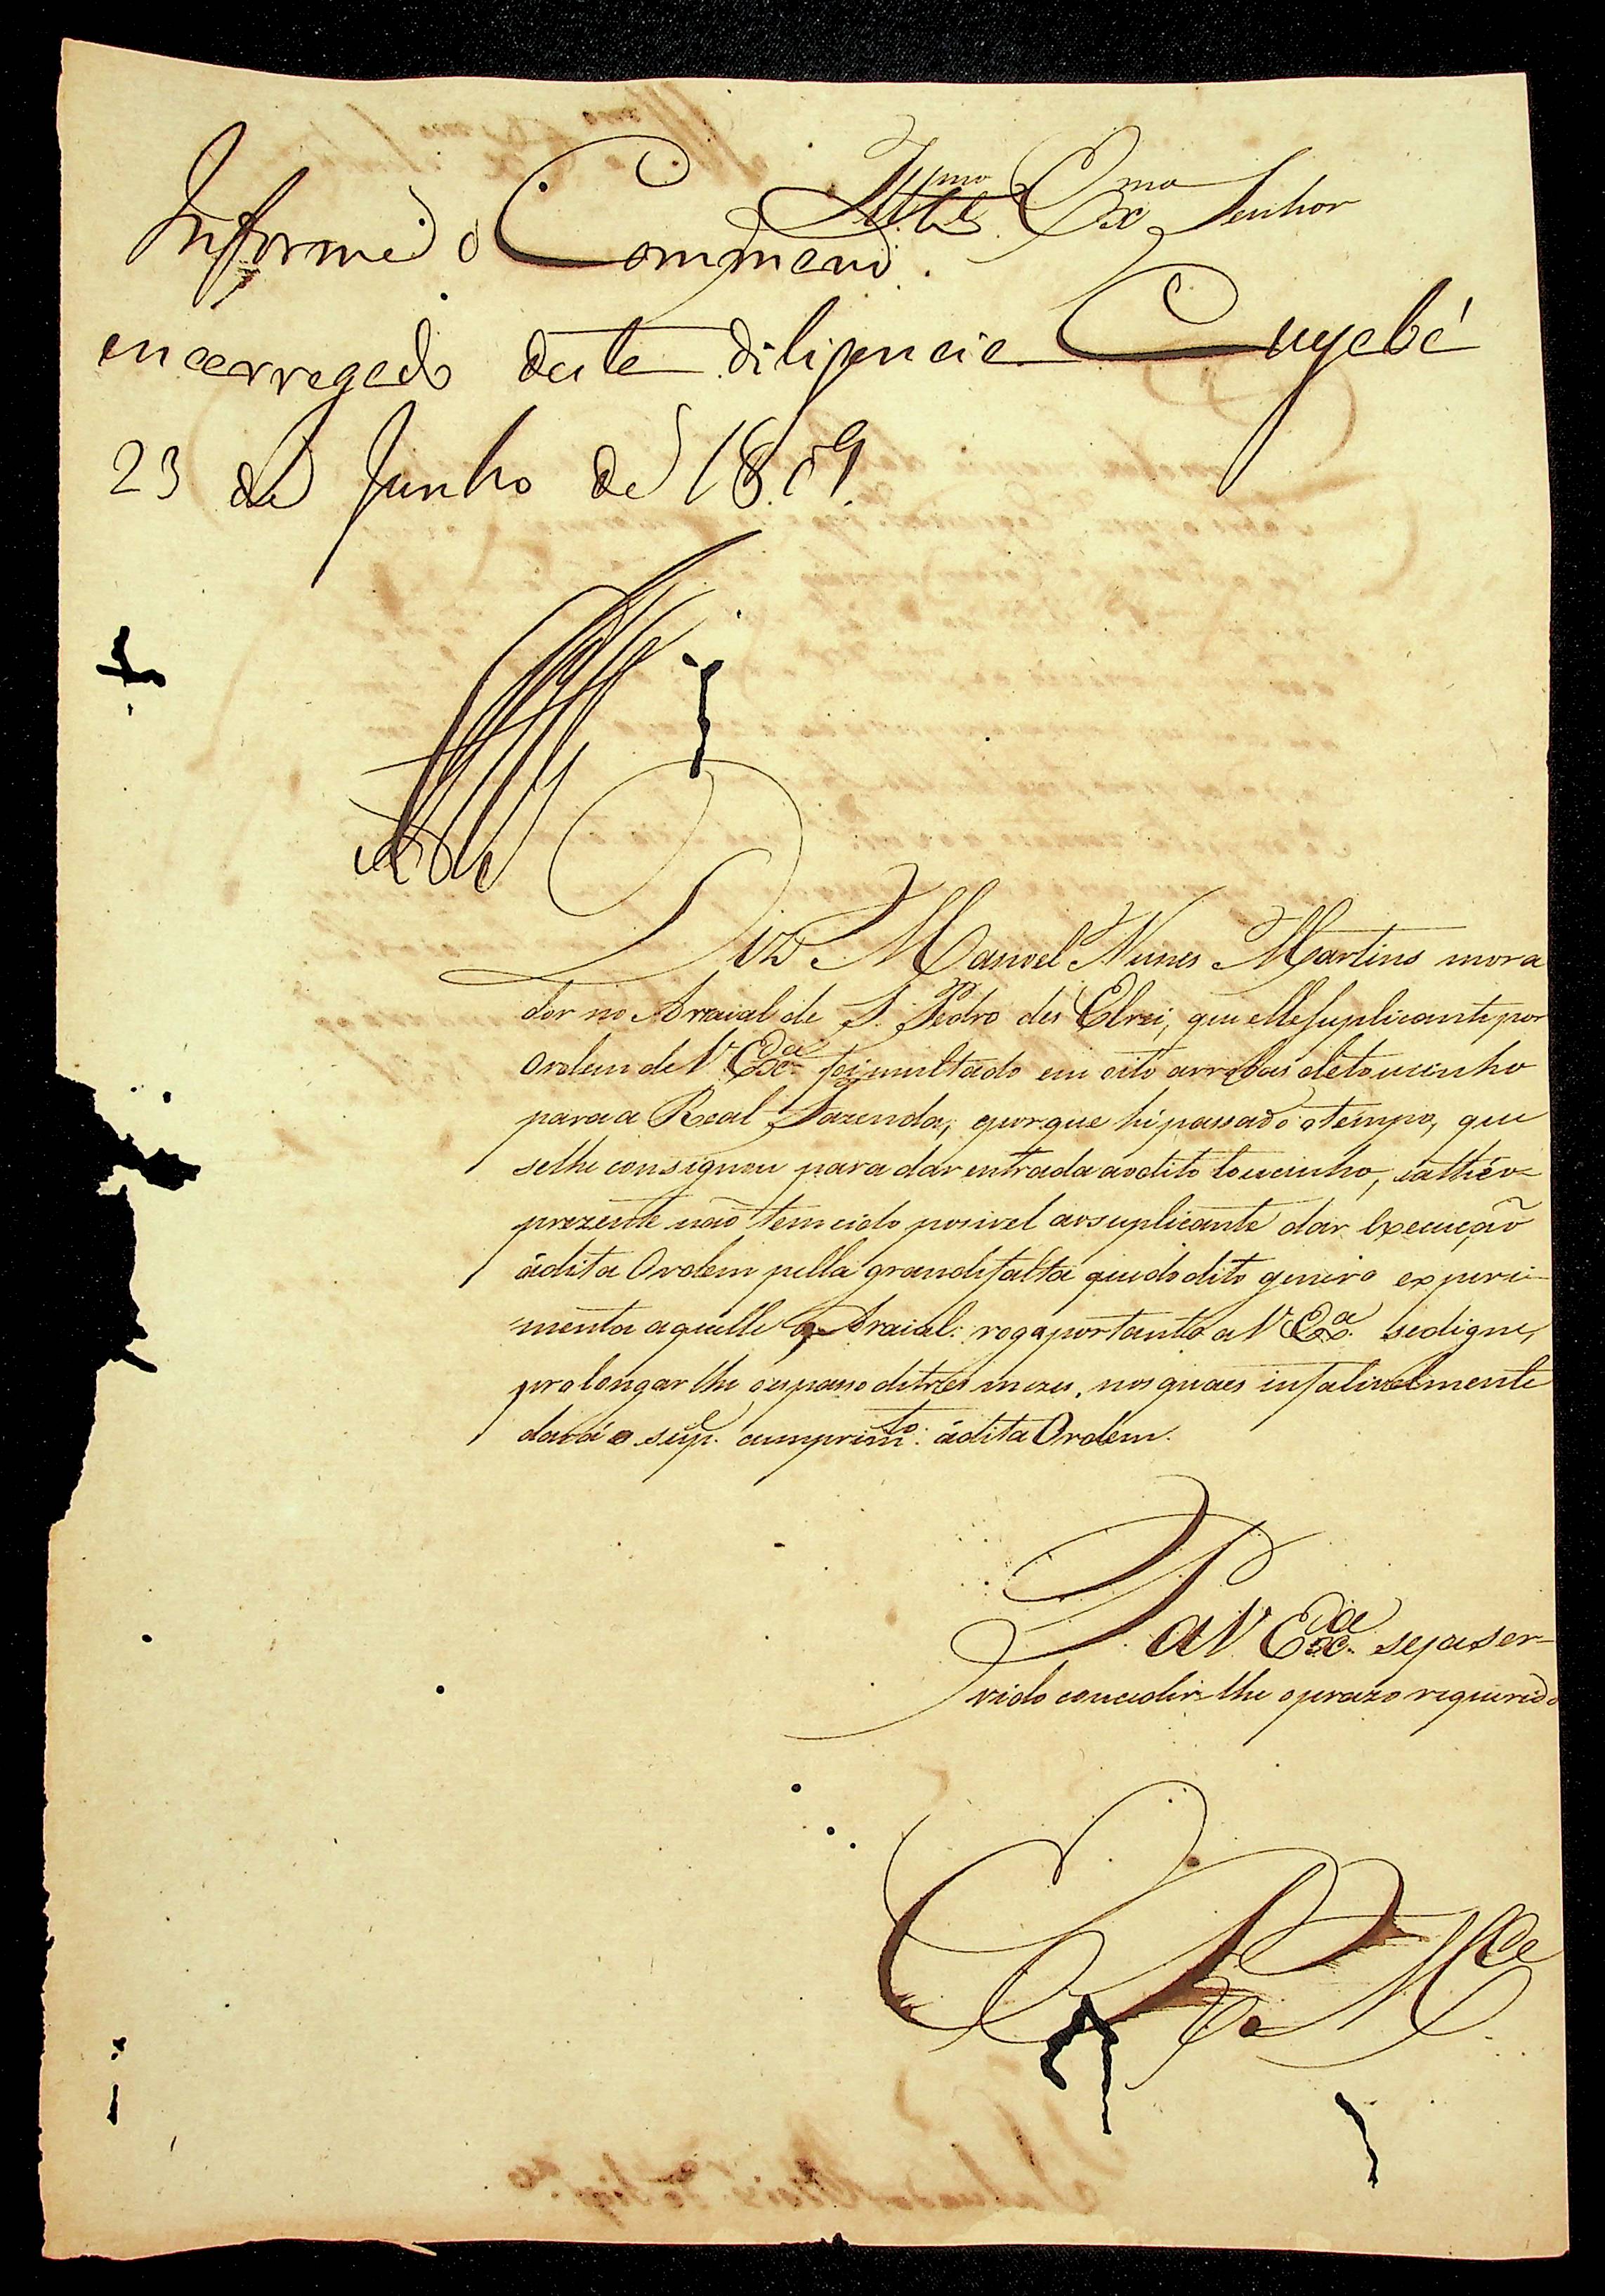 Ill.mo e Ex.mo Senhor
Informe o Commend.
encarregado desta diligencia Cuyabá
23 de Junho de 1809.
Diz Manoel Nunes Martins mora
dor no Arraial de S. Pedro del Elrei, que elle suplicante por
Ordem de V. Ex.cia foi multado em oito arrobas de toucinho
para a Real Fazenda, e porque hé passado o tempo, que
se lhe consignou para dar entrada ao dito toucinho, e athé o
prezente não tem cido posivel ao suplicante dar Execução
á dita Ordem pella grande falta que do dito genero experi-
menta aquelle Arraial: roga portanto a V. Ex.a se digne,
prolongar lhe o espasso de tres mezes, nos quaes infalivelmente
dará o sup.e cumprim.to á dita Ordem.
P. a V. Ex.cia seja ser-
vido conceder-lhe o prazo requerido
E. R. M.ce